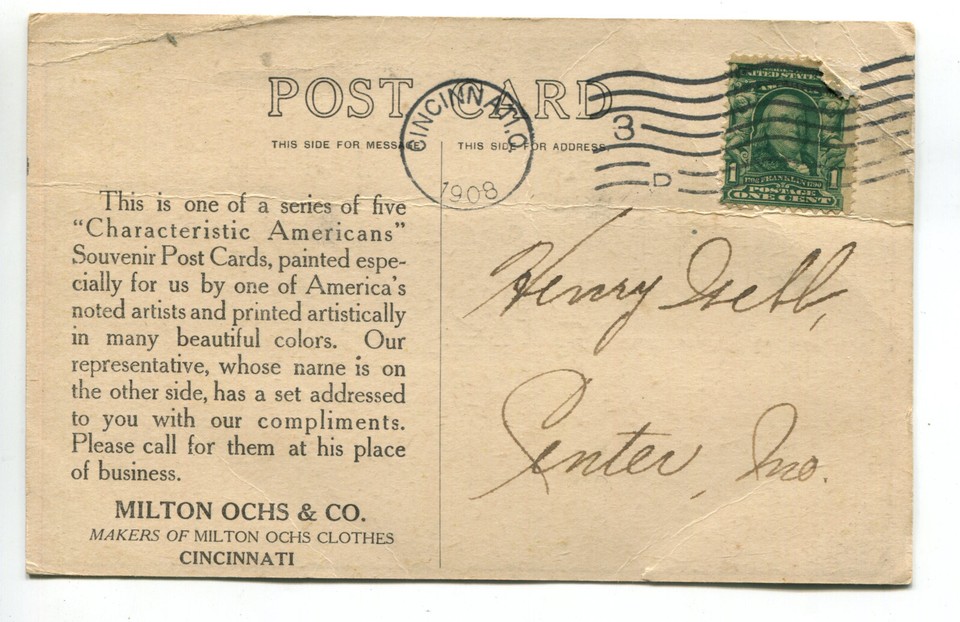 POST CARD
CINCINNATI, O.
1908
3
D
UNITED STATES
1 FRANKLIN 1
POSTAGE
ONE CENT
THIS SIDE FOR MESSAGE
THIS SIDE FOR ADDRESS.
This is one of a series of five
“Characteristic Americans”
Souvenir Post Cards, painted espe-
cially for us by one of America's
noted artists and printed artistically
in many beautiful colors. Our
representative, whose name is on
the other side, has a set addressed
to you with our compliments.
Please call for them at his place
of business.
MILTON OCHS & CO.
MAKERS OF MILTON OCHS CLOTHES
CINCINNATI
Henry
Center, Mo.